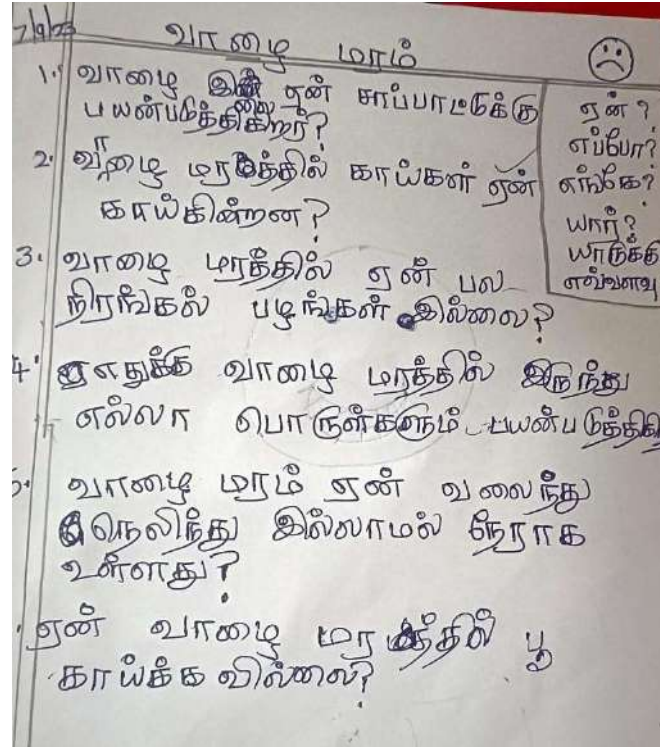 7/9/23
வாழை மரம்
1. வாழை இலை ஏன் சாப்பாட்டுக்கு
பயன்படுத்திகிறர்?
2. வாழை மரத்தில் காய்கள் ஏன்
காய்கின்றன?
3. வாழை மரத்தில் ஏன் பல
நிரங்கல் பழங்கள் இல்லை?
4. எதுக்கு வாழை மரத்தில் இருந்து
எல்லா பொருள்களும் பயன்படுத்திகி
வாழை மரம் ஏன் வலைந்து
நெலிந்து இல்லாமல் நேராக
உள்ளது?
ஏன் வாழை மரத்தில் பூ
காய்க்கவில்லை?
ஏன்?
எப்போ?
எங்கே?
யார்?
யாருக்கு
எவ்வளவு